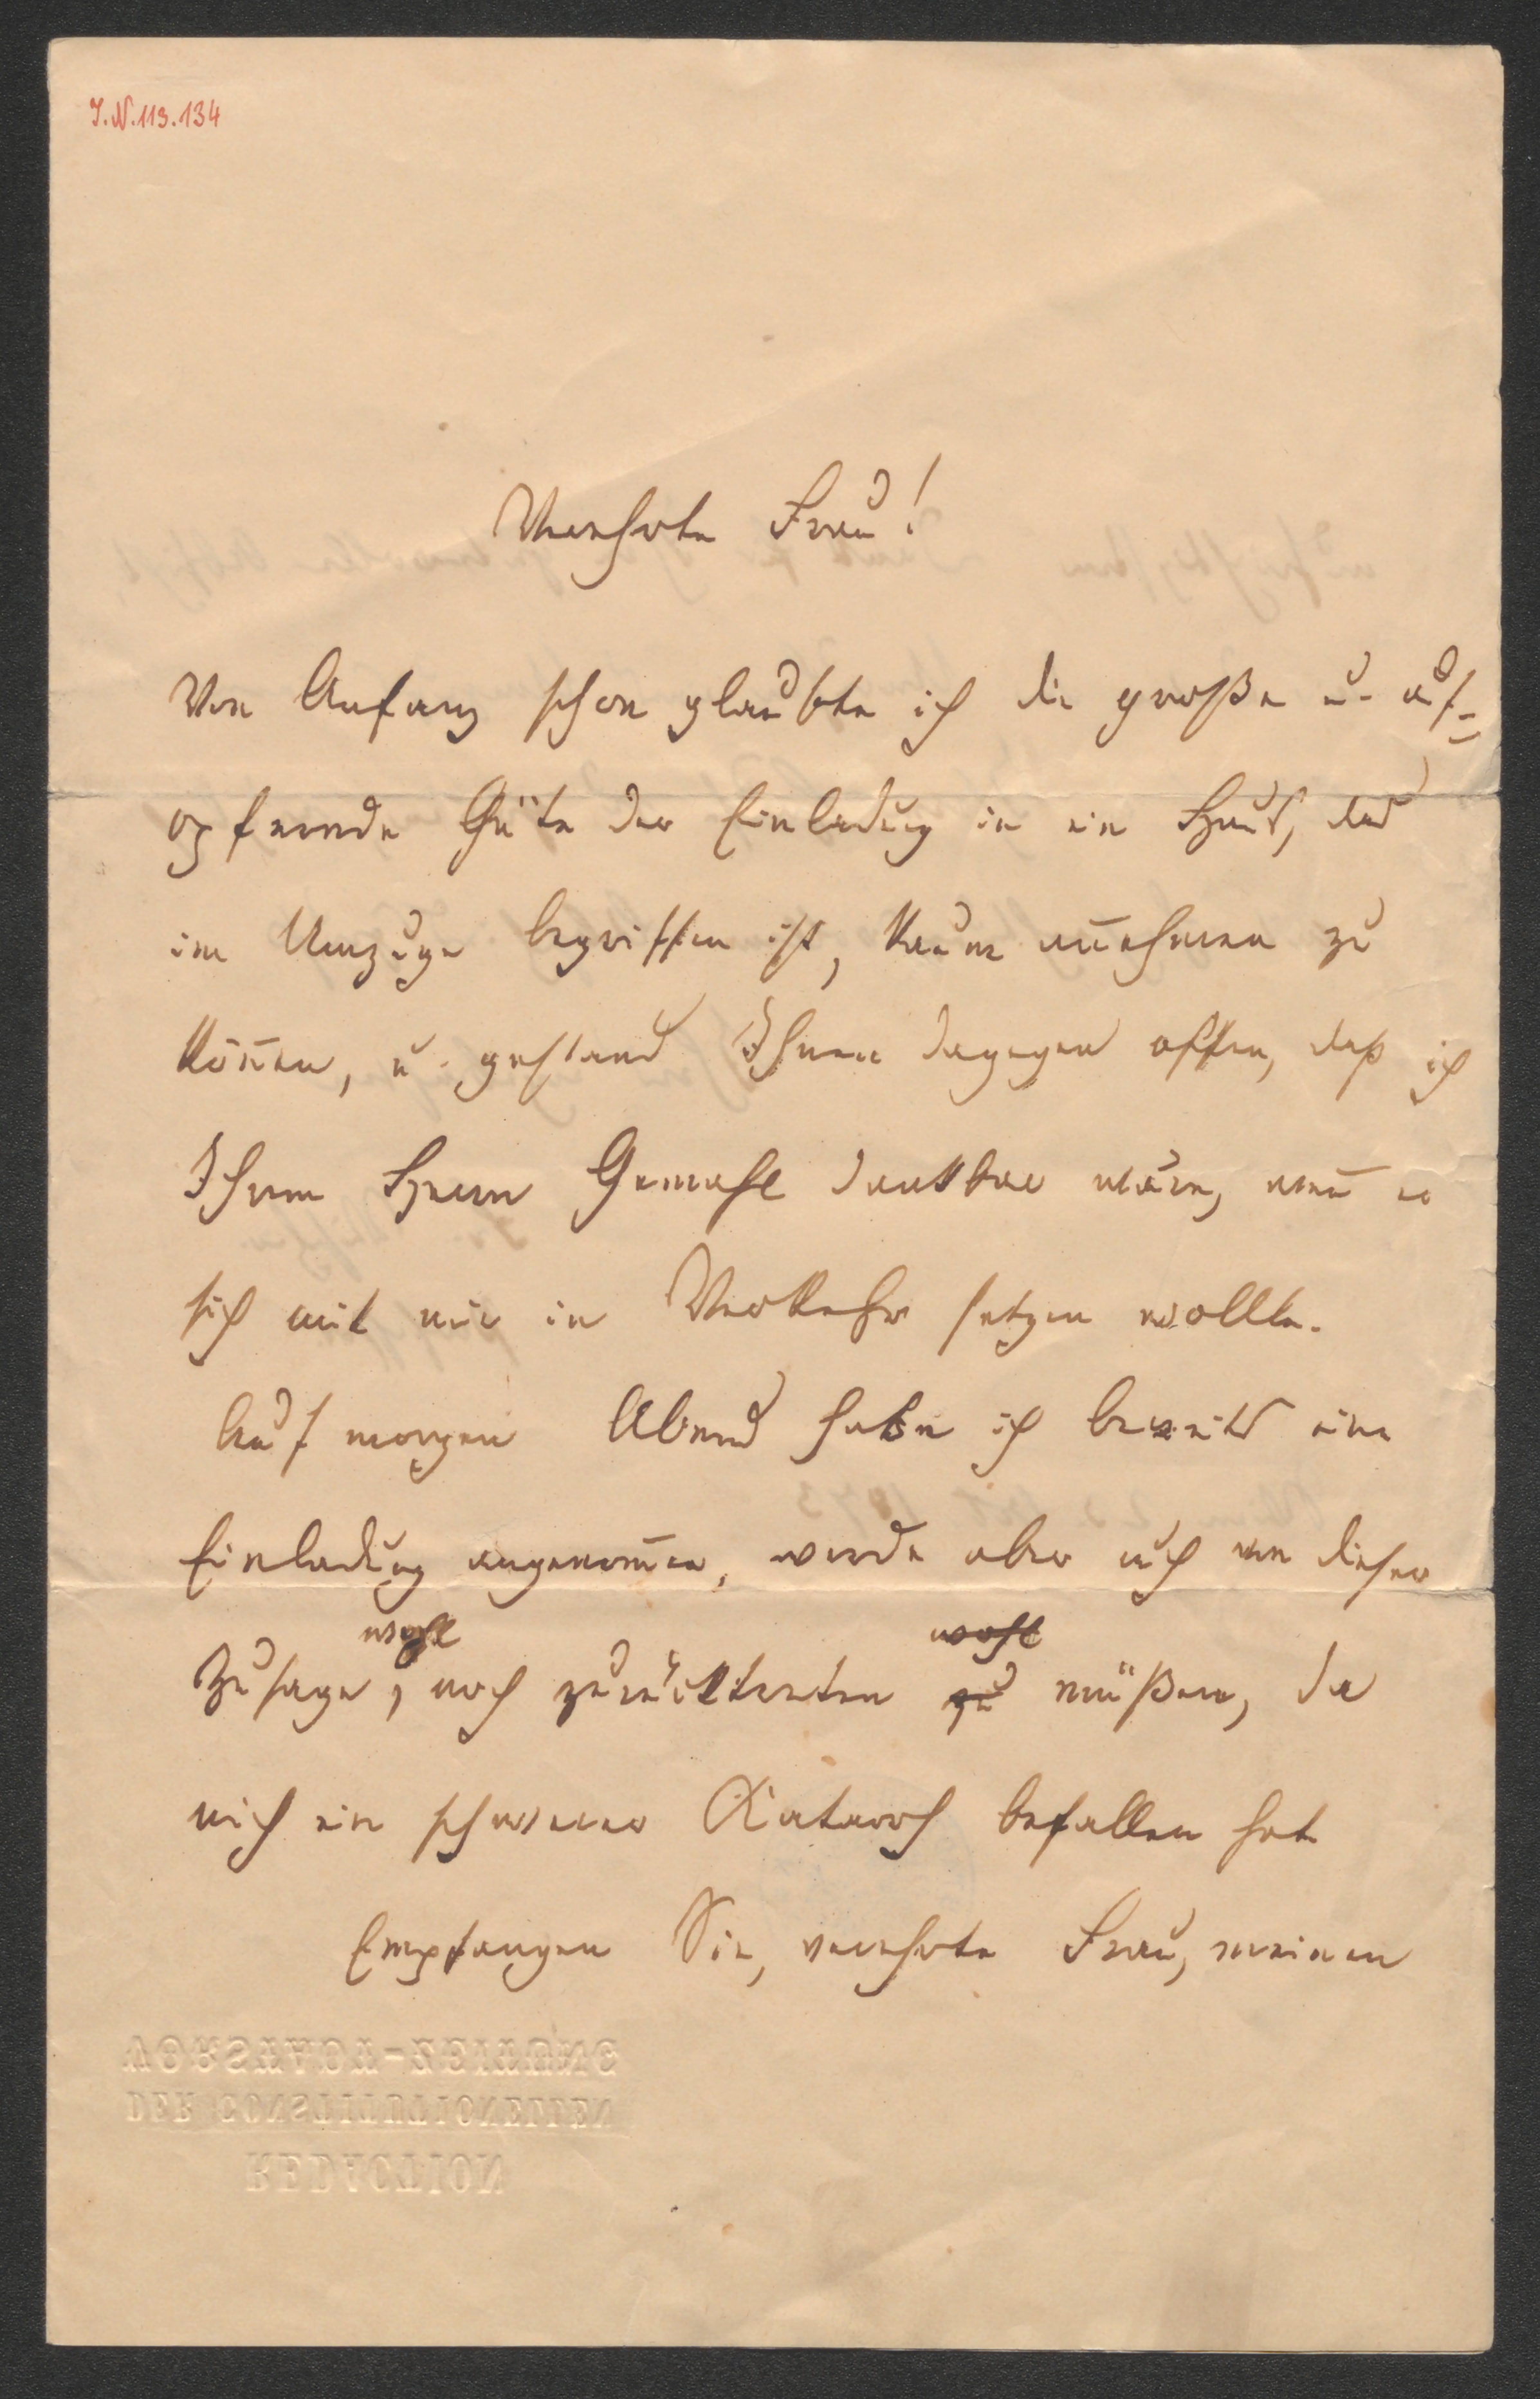 J.N. 119.134
Verehrte Frau!
Von Anfang schon glaubte ich die große u. auf-
opfernde Güte der Einladung in ein Haus, das
im Umzuge begriffen ist, kaum an̄ehmen zu
kön̄en, u. gestand Ihnen dagegen offen, daß ich
Ihrem Herrn Gemahl dankbar wäre, wen̄ er
sich mit mir in Verkehr setzen wollte.
Auf morgen Abend habe ich bereits eine
Einladung angenom̄en, werde aber auch von dieser
wohl wohl
Zusage, noch zurücktreten zu müßen, da
mich ein schwerer Katarrh befallen hat
Empfangen Sie, verehrte Frau, meinen
VORSTADT-ZEITUNG
DER CONSTITUTIONELLEN
REDACTION